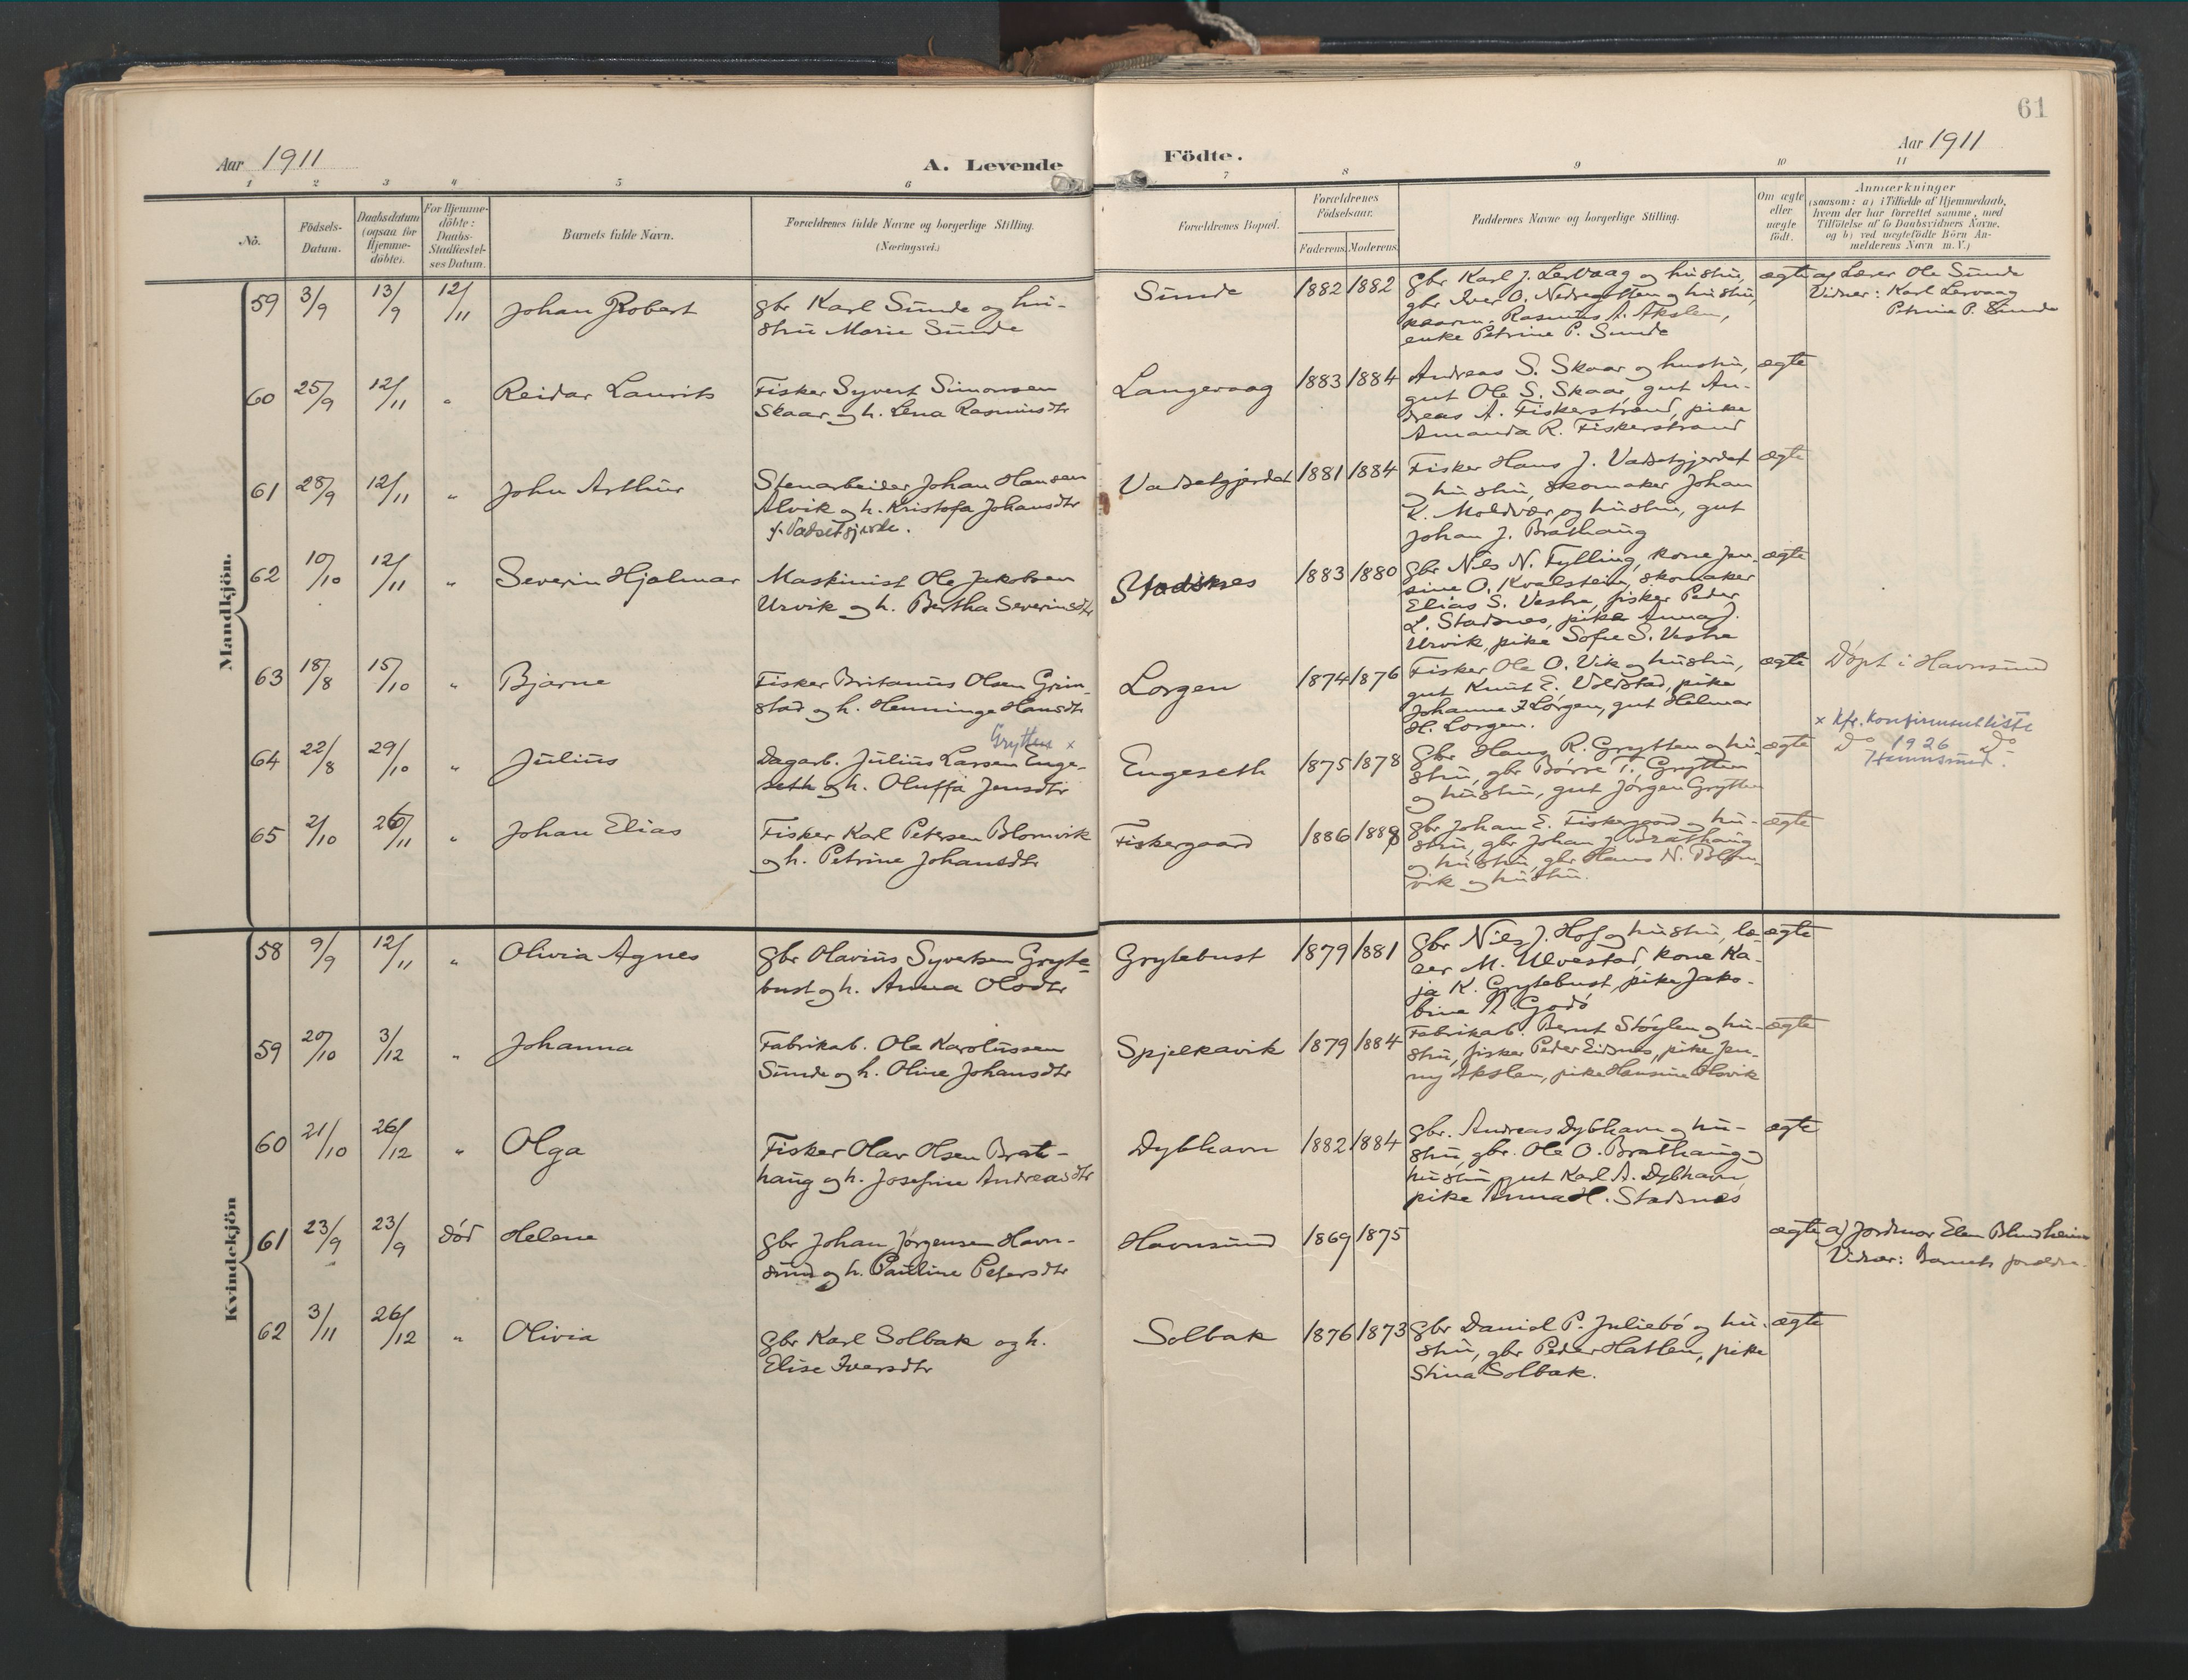 61
Aar 1911
A. Levende
Födte.
Aar 1911
1 2 3 4 5 6 7 8 9 10 11
No.
Födsels-
Datum.
Daabsdatum
(ogsaa for
Hjemme-
döbte).
For Hjemme-
döbte:
Daabs-
Stadfæstel-
ses Datum.
Barnets fulde Navn.
Forældrenes fulde Navne og borgerlige Stilling.
(Næringsvei.)
Forældrenes Bopæl.
Forældrenes
Födselsaar.
Faderens.
Moderens.
Faddernes Navne og borgerlige Stilling.
Om ægte
eller
uægte
födt.
Anmærkninger
(saasom: a) i Tilfælde af Hjemmedaab,
hvem der har forrettet samme, med
Tilföielse af to Daabsvidners Navne,
og b) ved uægtefödte Börn An-
melderens Navn m. V.)
Mandkjön.
59 3/9 13/9 12/11 Johan Robert
gbr Karl Sunde og hu-
stru Marie Sunde
Sunde 1882 1882
gbr Karl J. Lervaag og hustru,
gbr Iver O. Nedregotten og hustru,
Rasmus A. Akslen,
enke Petrine P. Sunde
ægte
a) Lærer Ole Sunde
Vidner: Karl Lervaag
Petrine P. Sunde
60 25/9 12/11 " Reidar Laurits
Fisker Syvert Simonsen
Skaar og h. Lena Rasmusdtr
Langevaag 1883 1884
Andreas S. Skaar og hustru,
gut Ole S. Skaar, gut An-
dreas A. Fiskerstrand, pike
Amanda R. Fiskerstrand
ægte
61 28/9 12/11 " John Arthur
Stenarbeider Johan Hansen
Alvik og h. Kristofa Johansdtr
f. Vadsetgjerde.
Vadsetgjerdet 1881 1884
Fisker Hans J. Vadsetgjerdet
og hustru, skomaker Johan
K. Moldvær og hustru, gut
Johan J. Brathaug
ægte
62 10/10 12/11 " Severin Hjalmar
Maskinist Ole Jakobsen
Urvik og h. Bertha Severinsdtr
Stadsnes 1883 1880
gbr Nils N. Fylling, kone Jen-
sine O. Kvalstein, skomaker
Elias S. Vestre, fisker Peder
L. Stadsnes, pike Anna J.
Urvik, pike Sofie S. Vestre
ægte
63 18/8 15/10 " Bjarne
Fisker Britanus Olsen Grim-
stad og h. Henninge Hansdtr
Lorgen 1874 1876
Fisker Ole O. Vik og hustru,
gut Knut E. Volstad, pike
Johanne I Lorgen, gut Helmar
H. Lorgen.
ægte
Døpt i Havnsund
64 22/8 29/10 " Julius
Grytten x
Dagarb. Julius Larsen Enge-
seth og h. Oluffa Jensdtr
Engeseth 1875 1878
gbr Hans R. Grytten og hu-
stru, gbr Børre T. Grytten
og hustru, gut Jørgen Grytten
ægte
x Kfr. konfirmantliste
Do 1926 Do
Hamnsund.
65 2/10 26/11 " Johan Elias
Fisker Karl Petersen Blomvik
og h. Petrine Johansdtr
Fiskergaard 1886 1888
gbr Johan E. Fiskergaard og hu-
stru, gbr Johan J. Brathaug
og hustru, gbr Hans N. Blom-
vik og hustru.
ægte
Kvindekjön
58 9/9 12/11 " Olivia Agnes
gbr Olavius Syvertsen Gryte-
bust og h. Anna Olsdtr
Grytebust 1879 1881
gbr Nils J. Hof og hustru, læ-
rer M. Ulvestad, kone Ka-
ja K. Grytebust, pike Jako-
bine N. Godö
ægte
59 20/10 3/12 " Johanna
Fabrikarb. Ole Karolussen
Sunde og h. Oline Johansdtr
Spjelkavik 1879 1884
Fabrikarb. Bernt Støylen og hu-
stru, fisker Peder Eidsnes, pike Jen-
ny Akslen, pike Hansine Olsvik
ægte
60 21/10 26/12 " Olga
Fisker Olav Olsen Brat-
haug og h. Josefine Andreasdtr
Dybhavn 1882 1884
gbr. Andreas Dybhavn og hu-
stru, gbr. Ole O. Brathaug og
hustru, gut Karl A. Dybhavn,
pike Anna H. Stadsnes
ægte
61 23/9 23/9 død Helene
gbr Johan Jørgensen Havn-
sund og h. Pauline Petersdtr
Havnsund 1869 1875
ægte
a) Jordmor Elen Blindheim
Vidner: Barnets forældre.
62 3/11 26/12 " Olivia
gbr Karl Solbak og h.
Elise Iversdtr
Solbak 1876 1873
gbr Daniel P. Juliebö og hu-
stru, gbr Peder Hatlen, pike
Stina Solbak.
ægte